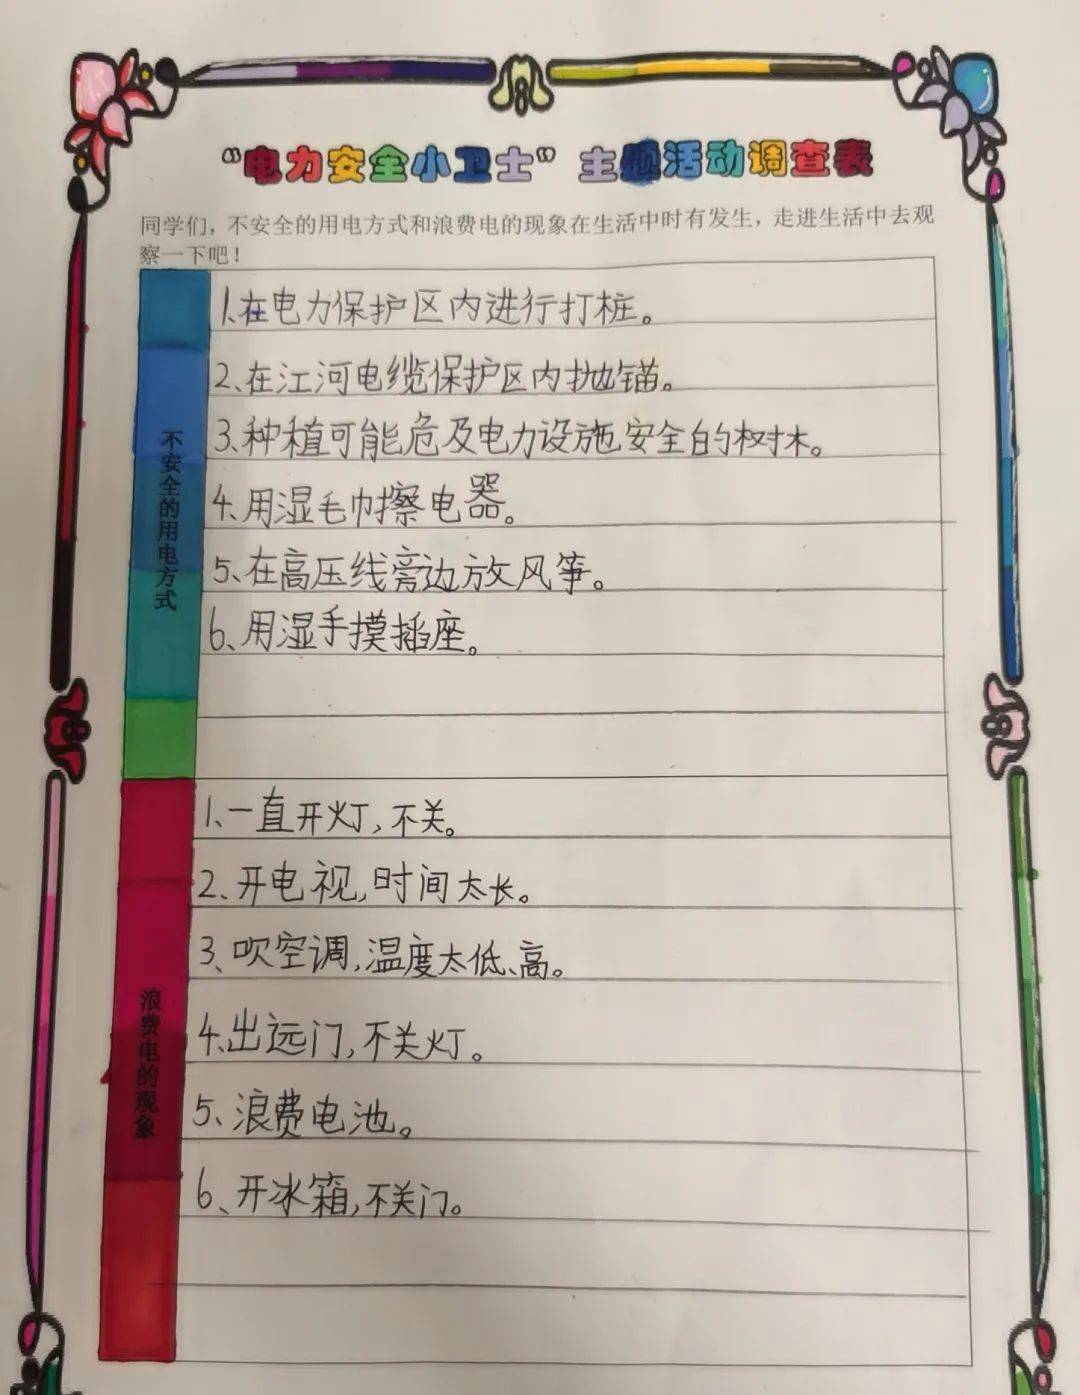 “电力安全小卫士”主题活动调查表
同学们，不安全的用电方式和浪费电的现象在生活中时有发生，走进生活中去观
察一下吧！
不安全的用电方式
1.在电力保护区内进行打桩。
2、在江河电缆保护区内抛锚。
3.种植可能危及电力设施安全的树木。
4、用湿毛巾擦电器。
5、在高压线旁边放风筝。
6、用湿手摸插座。
浪费电的现象
1、一直开灯,不关。
2、开电视,时间太长。
3、吹空调,温度太低、高。
4、出远门,不关灯。
5、浪费电池。
6、开冰箱,不关门。